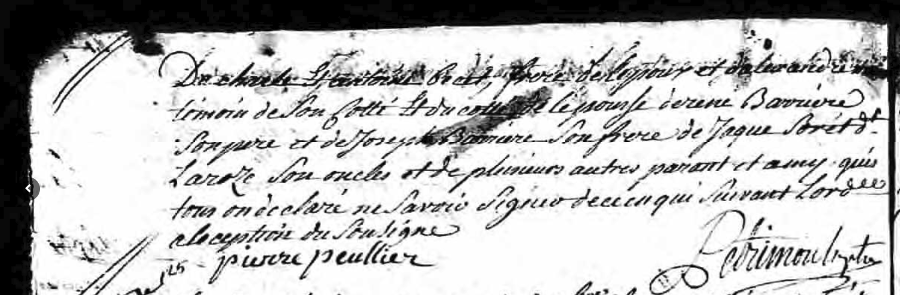 De charle et antoine Boët, frere de lespour et dalexandre
temoin de son Cotté et du cotté de lepouse de rene Barriere
Son pere et de Joseph Barriere Son frere de Jaque Boret dt
Laroze Son oncles et de plusieurs autres parant et amy quis
tous on declaré ne Savoir Signer de ce enqui Suivant Lordce
a loception du Sousigné
pierre peullier
Petrimoulx ptre